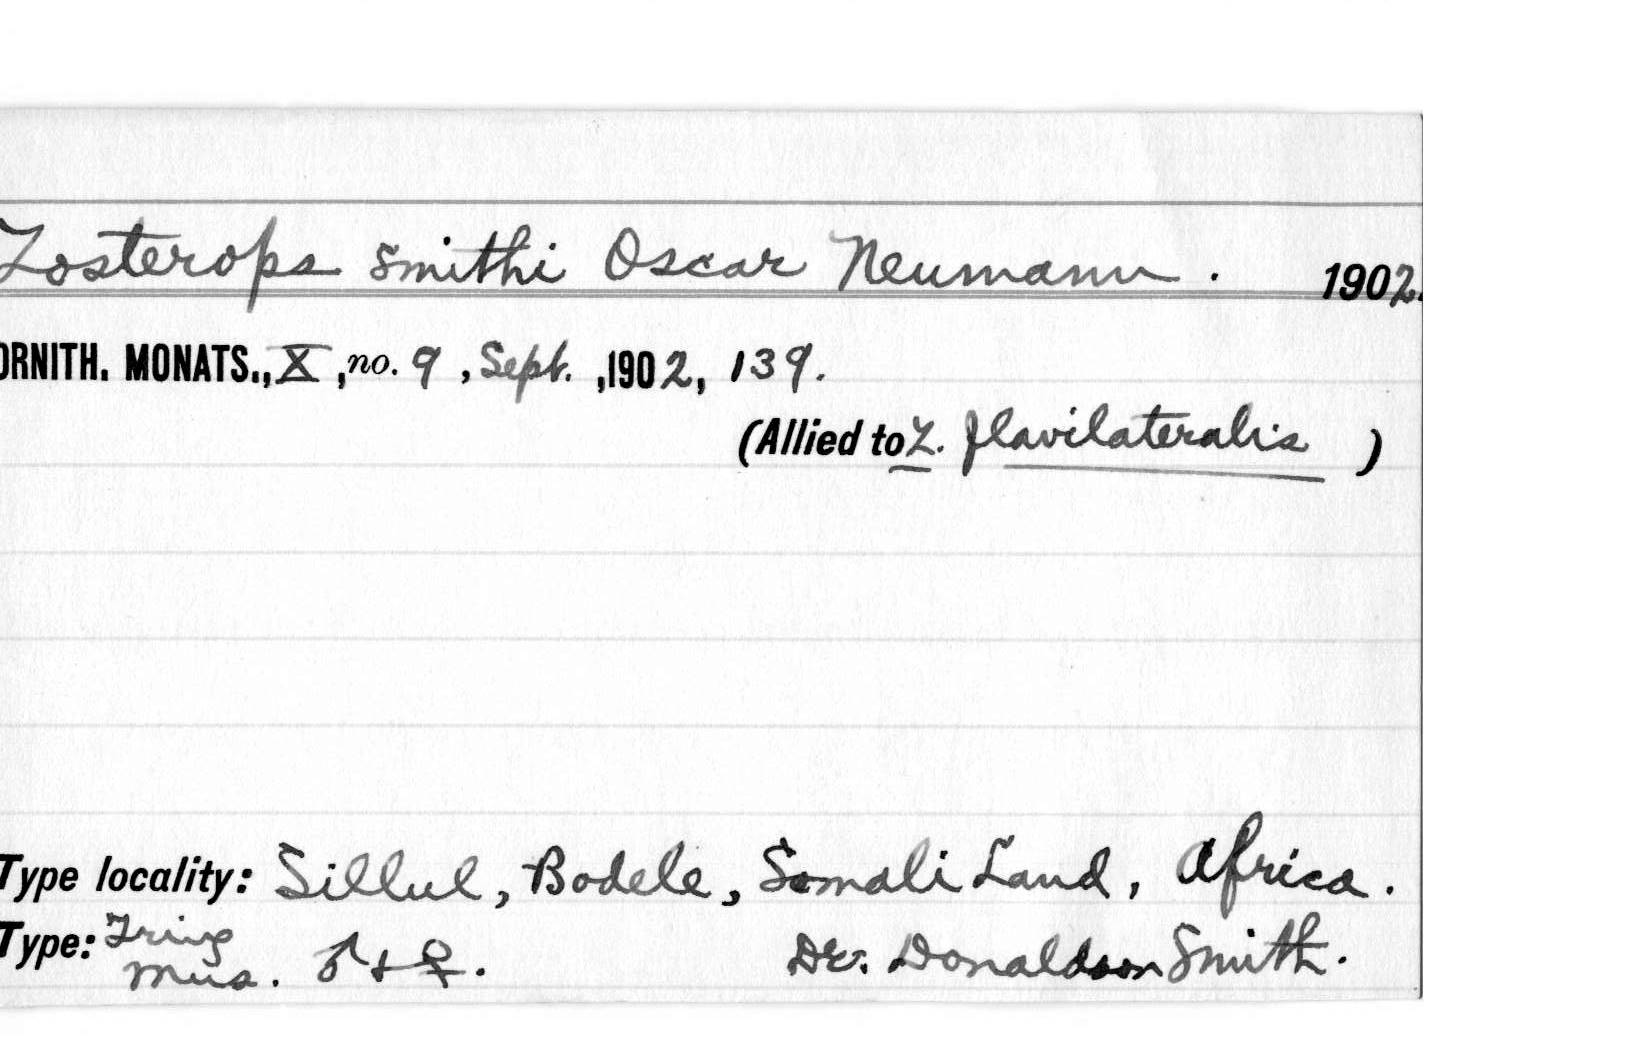 Zosterops smithi Oscar Neumann. 1902.
ORNITH. MONATS., X, no. 9, Sept., 1902, 139.
(Allied to Z. flavilateralis )
Type locality: Sillul, Bodele, Somali Land, Africa.
Type: Tring Mus. ♂ + ♀. Dr. Donaldson Smith.